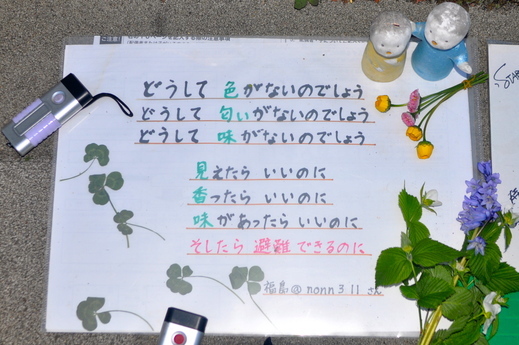 どうして 色がないのでしょう
どうして 匂いがないのでしょう
どうして 味がないのでしょう
見えたら いいのに
香ったら いいのに
味があったら いいのに
そしたら 避難できるのに
福島@nonn311さん